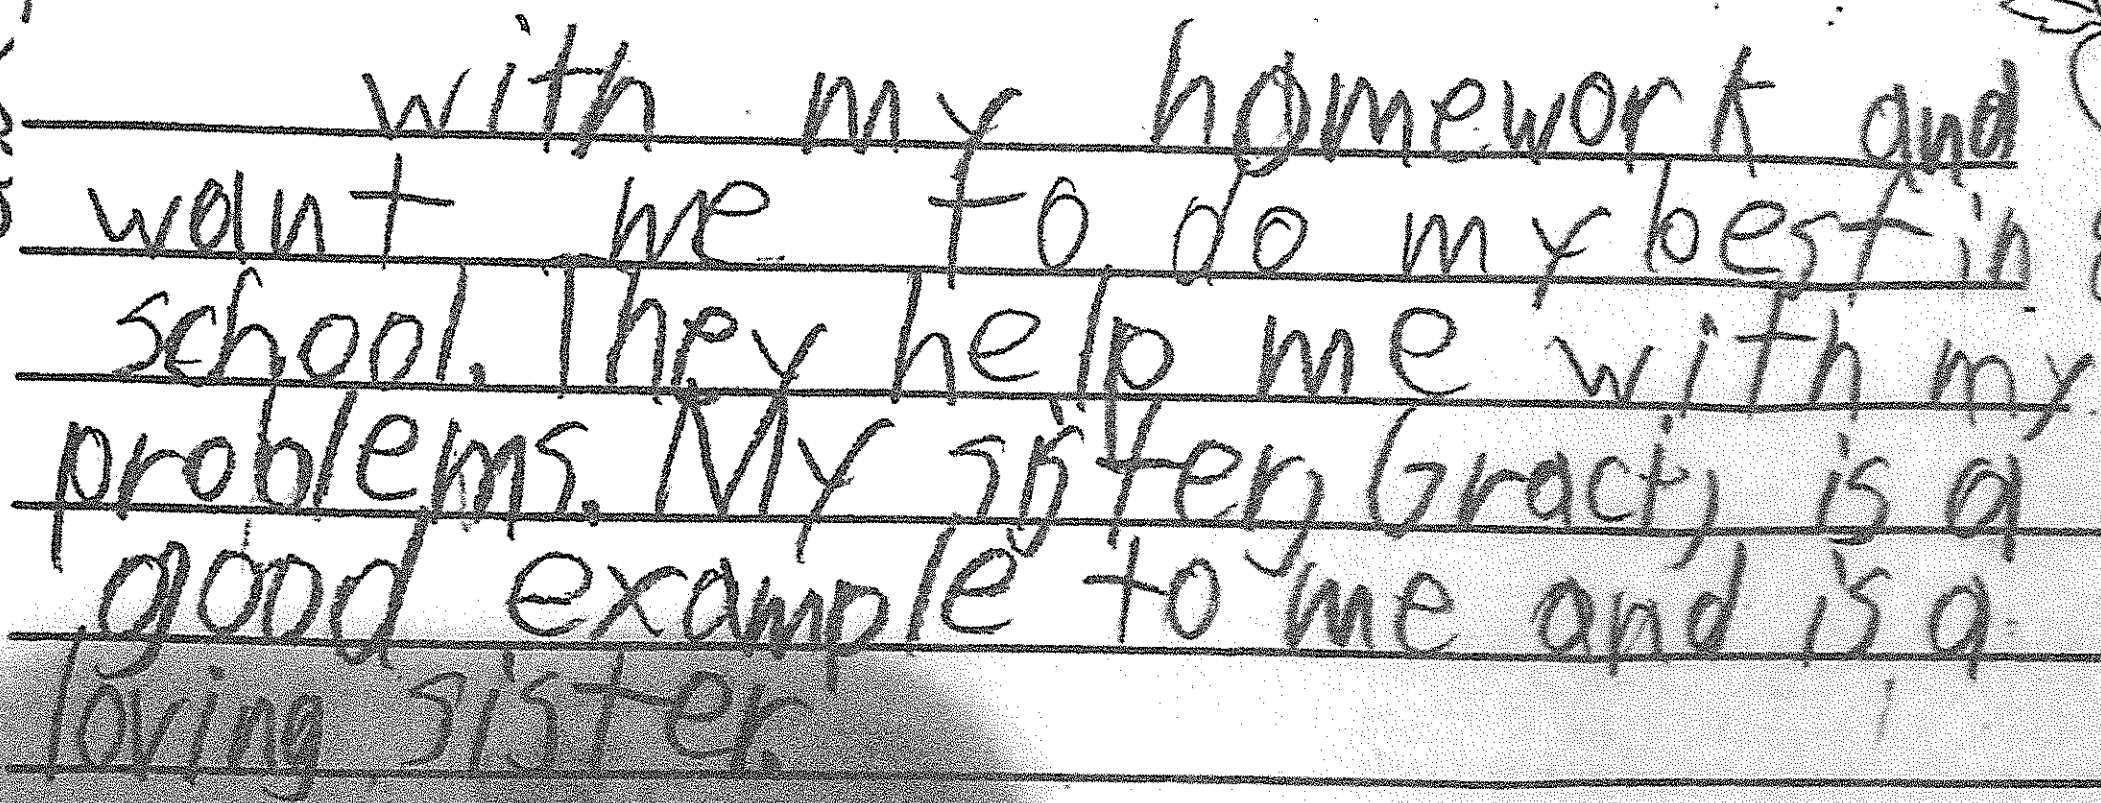 with my homework and
want me to do my best in
school. They help me with my
problems. My sister, Graci, is a
good example to me and is a
loving sister.